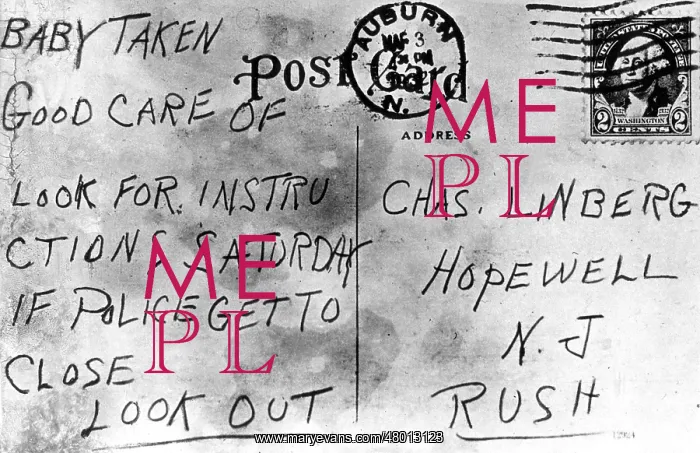 BABY TAKEN
GOOD CARE OF
LOOK FOR. INSTRU
CTIONS SATURDAY
IF POLICE GET TO
CLOSE
LOOK OUT
POST Card
ADDRESS
AUBURN
MAR 3
PM
N.
2 WASHINGTON 2
CENTS
CHAS. LINBERG
HOPEWELL
N. J
RUSH
ME
PL
ME
PL
www.maryevans.com/48013123